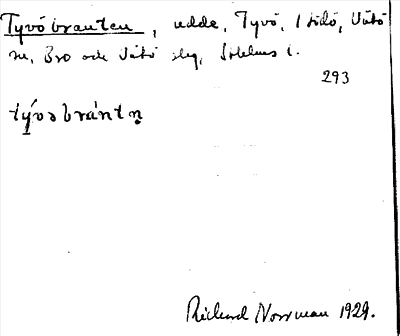 Tyvöbranten, udde, Tyvö, Lidö, Vätö
sn, Bro och Vätö skg, Sthlms l.
293
tývəbràntn̥
Richard Norrman 1929.